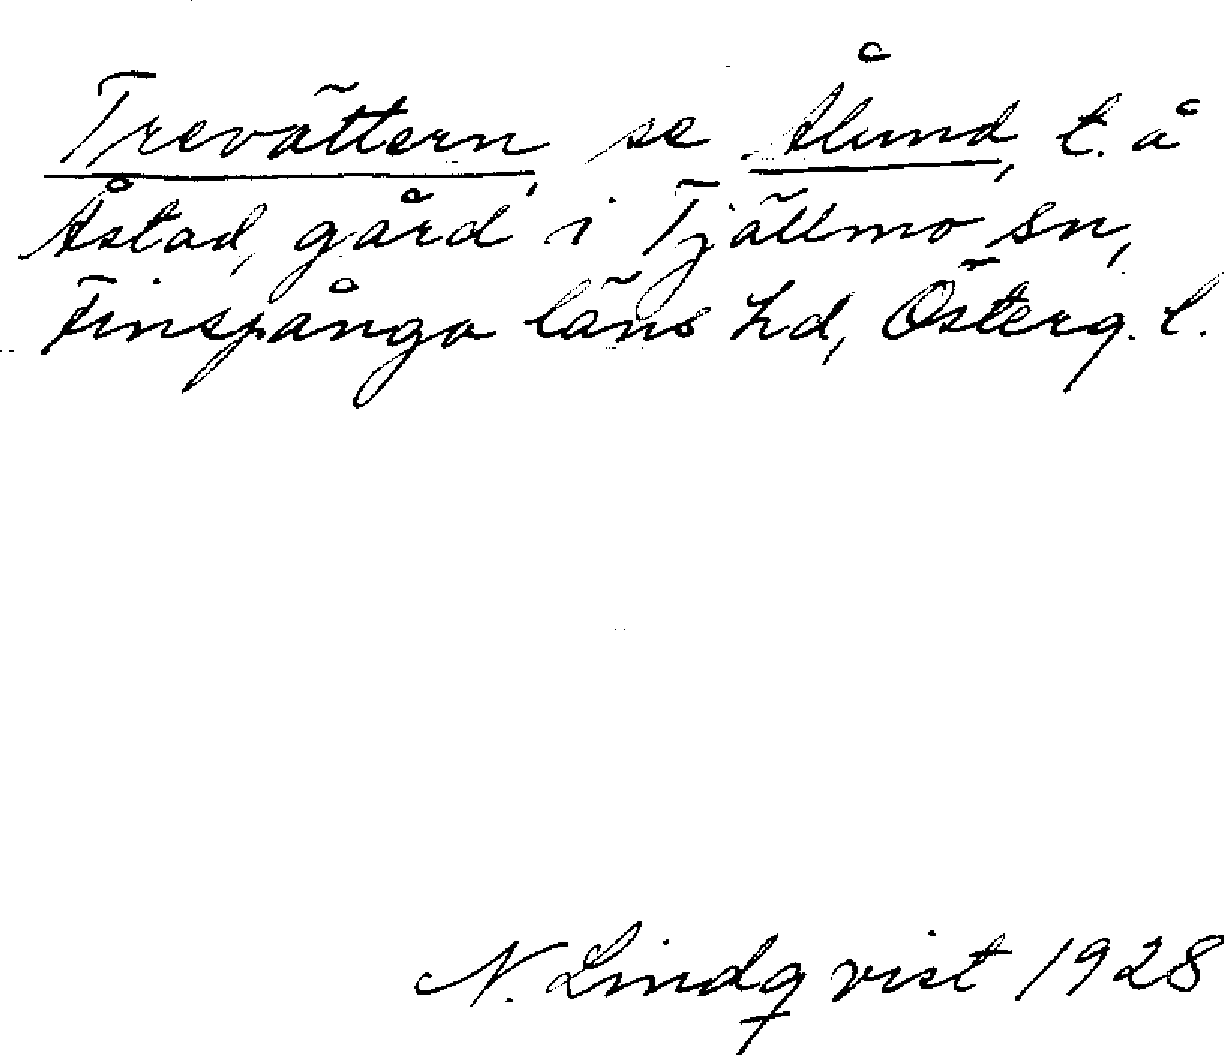 Trevättern, se Ålund, t. å
Åstad, gård i Tjällmo sn,
Finspånga läns hd, Österg. l.
N. Lindqvist 1928